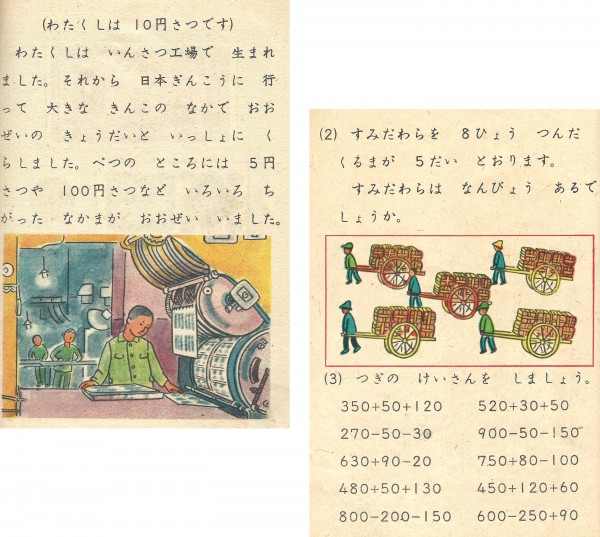 (わたくしは 10円さつです)
わたくしは いんさつ工場で 生まれ
ました。それから 日本ぎんこうに 行
って 大きな きんこの なかで おお
ぜいの きょうだいと いっしょに く
らしました。べつの ところには 5円
さつや 100円さつなど いろいろ ち
がった なかまが おおぜい いました。
(2) すみだわらを 8ひょう つんだ
くるまが 5だい とおります。
すみだわらは なんびょう あるで
しょうか。
(3) つぎの けいさんを しましょう。
350+50+120 520+30+50
270-50-30 900-50-150
630+90-20 750+80-100
480+50+130 450+120+60
800-200-150 600-250+90